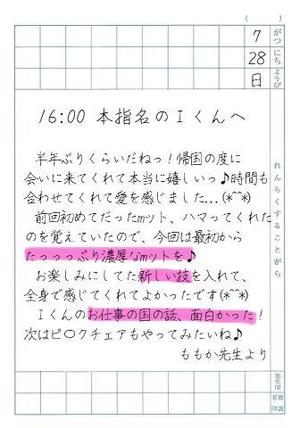 (　　)
7 がつ
28 にち
日 ようび
れんらくすることがら
16:00 本指名のIくんへ
半年ぶりくらいだねっ！帰国の度に
会いに来てくれて本当に嬉しいっ♪時間も
合わせてくれて愛を感じました...(*^^*)
前回初めてだったmット、ハマってくれた
のを覚えていたので、今回は最初から
たっっっぷり濃厚なmットを♪
お楽しみにしてた新しい技を入れて、
全身で感じてくれてよかったです(*^^*)
Iくんのお仕事の国の話、面白かった！
次はピ〇クチェアもやってみたいね♪
ももか先生より